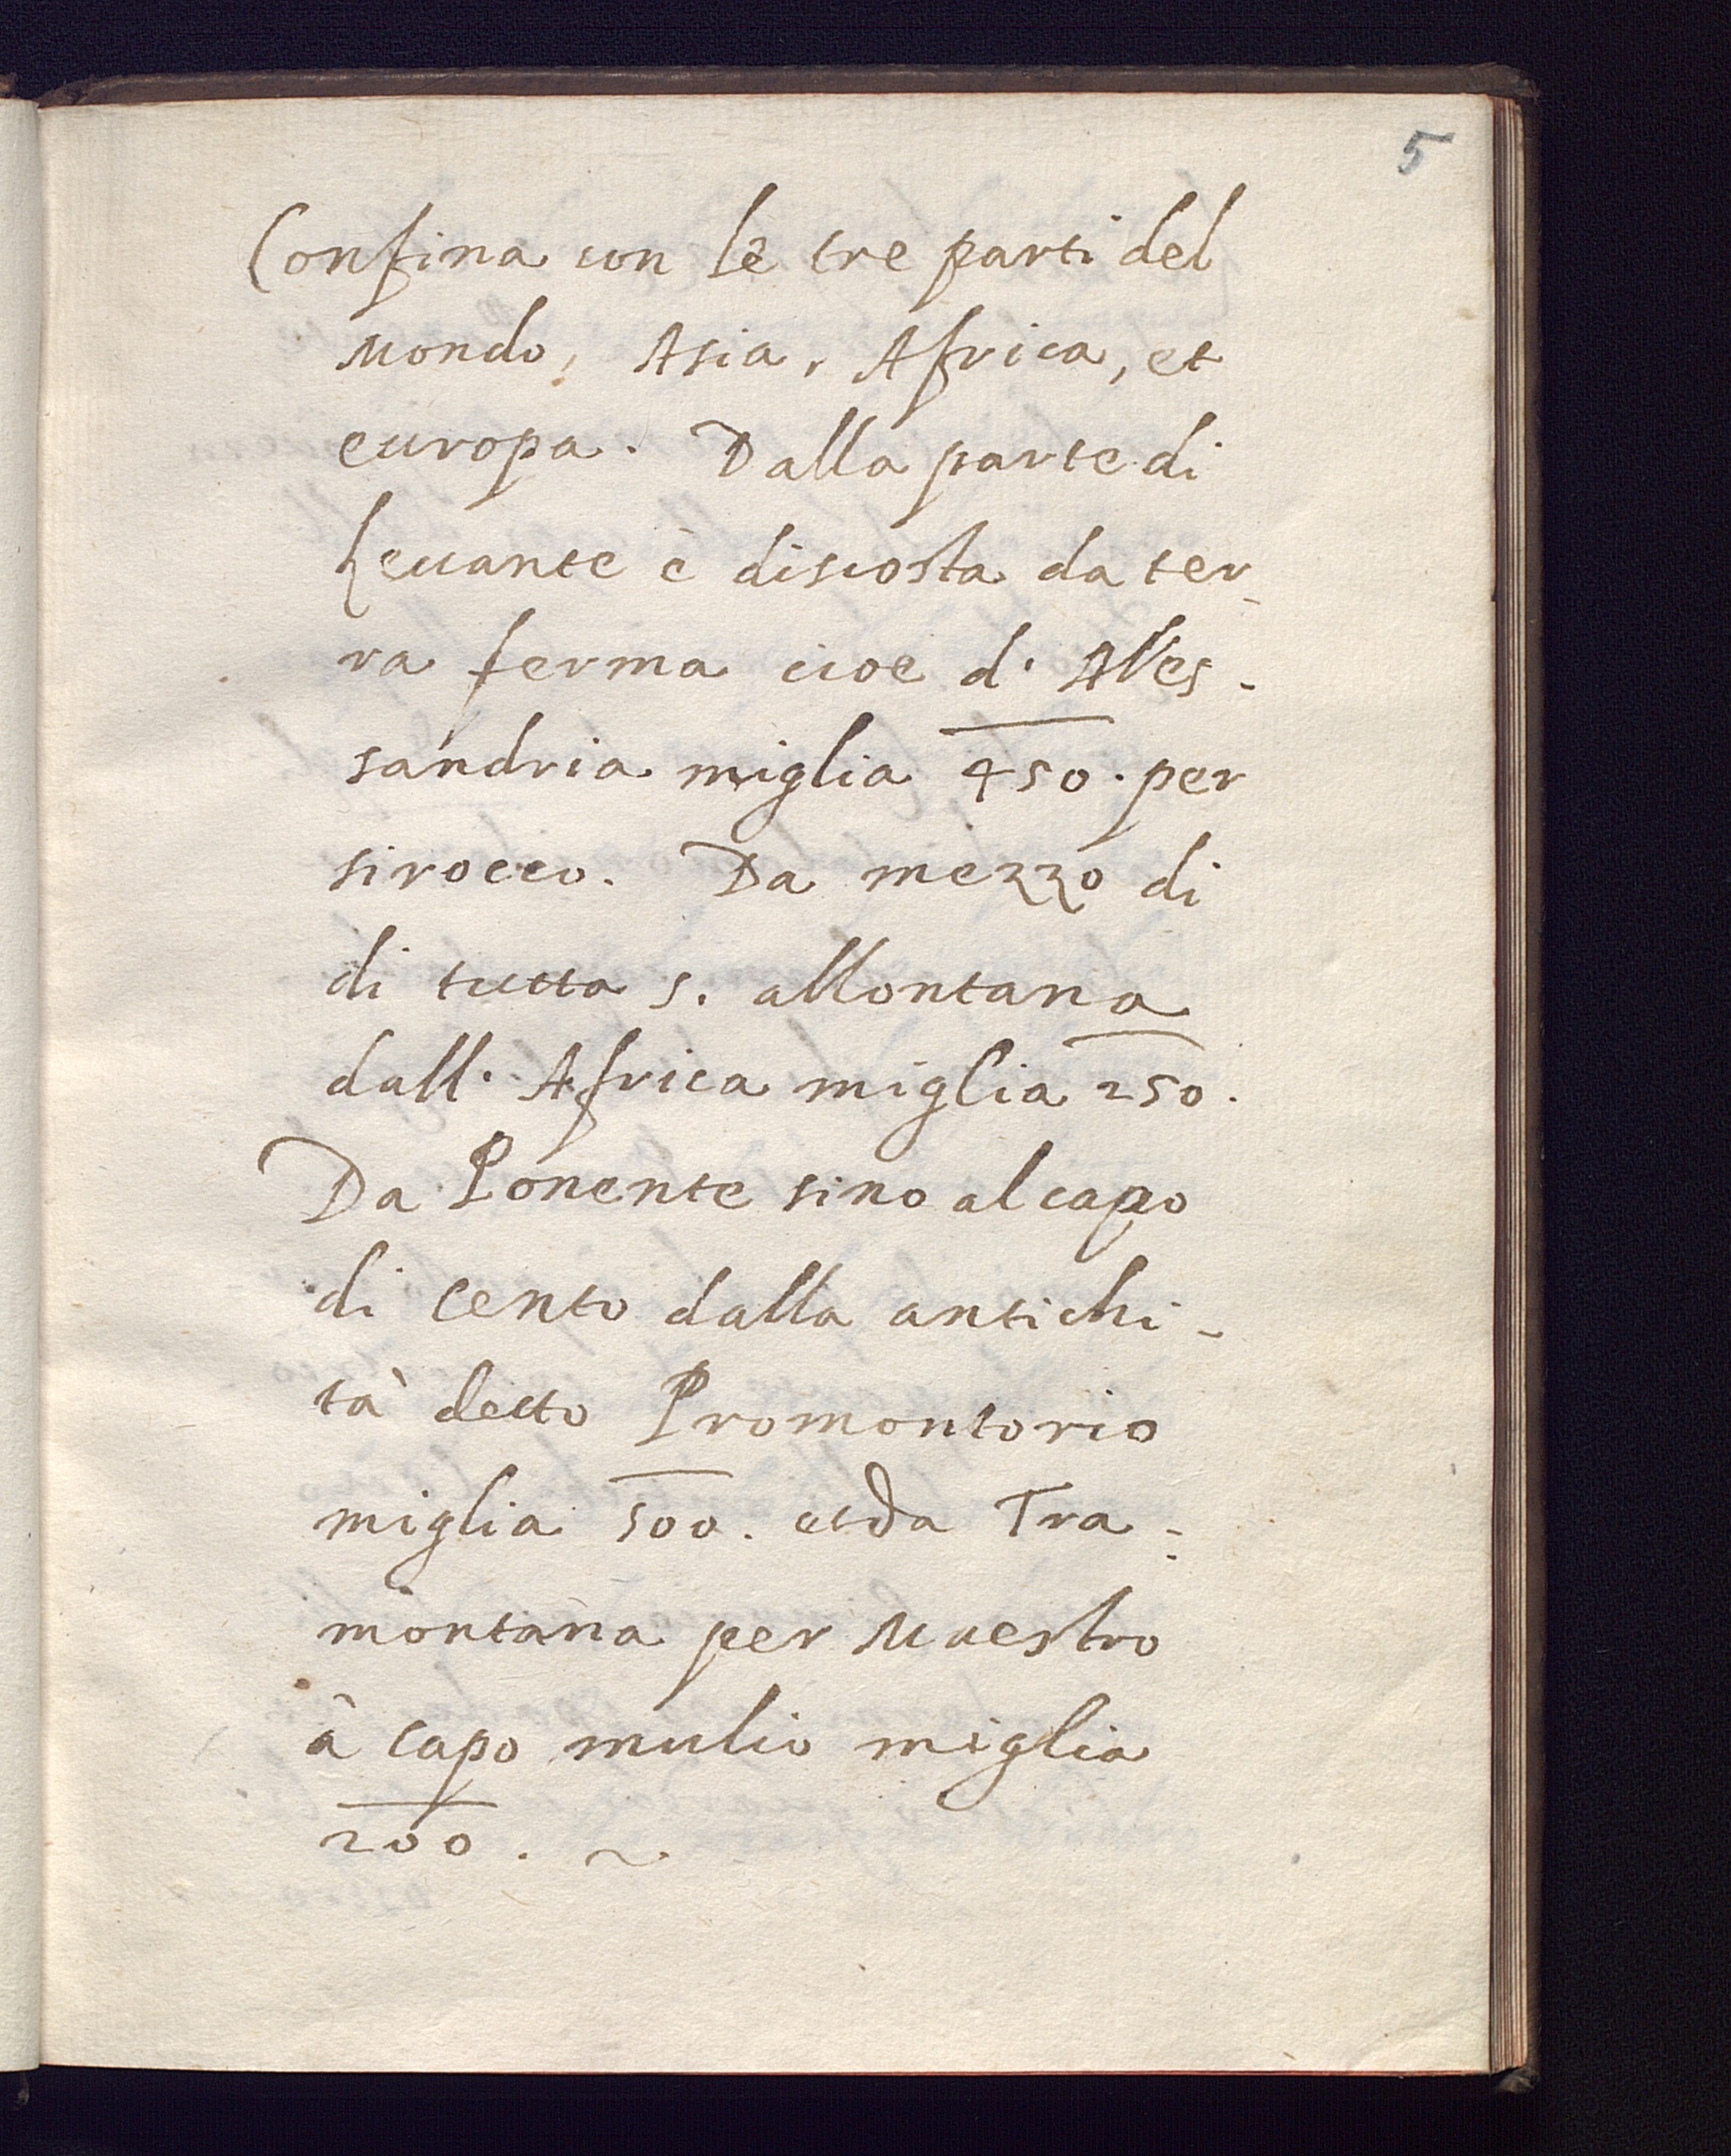 5
Confina con le tre parti del
Mondo, Asia, Africa, et
europa. Dalla parte di
Leuante è discosta da ter-
ra ferma cioe d' Ales-
sandria miglia 450. per
sirocco. Da mezzo di
di tutta s' allontana
dall' Africa miglia 250.
Da Ponente sino al capo
di cento dalla antichi-
tà detto Promontorio
miglia 500. et da Tra-
montana per Maestro
à capo mulio miglia
200. ~